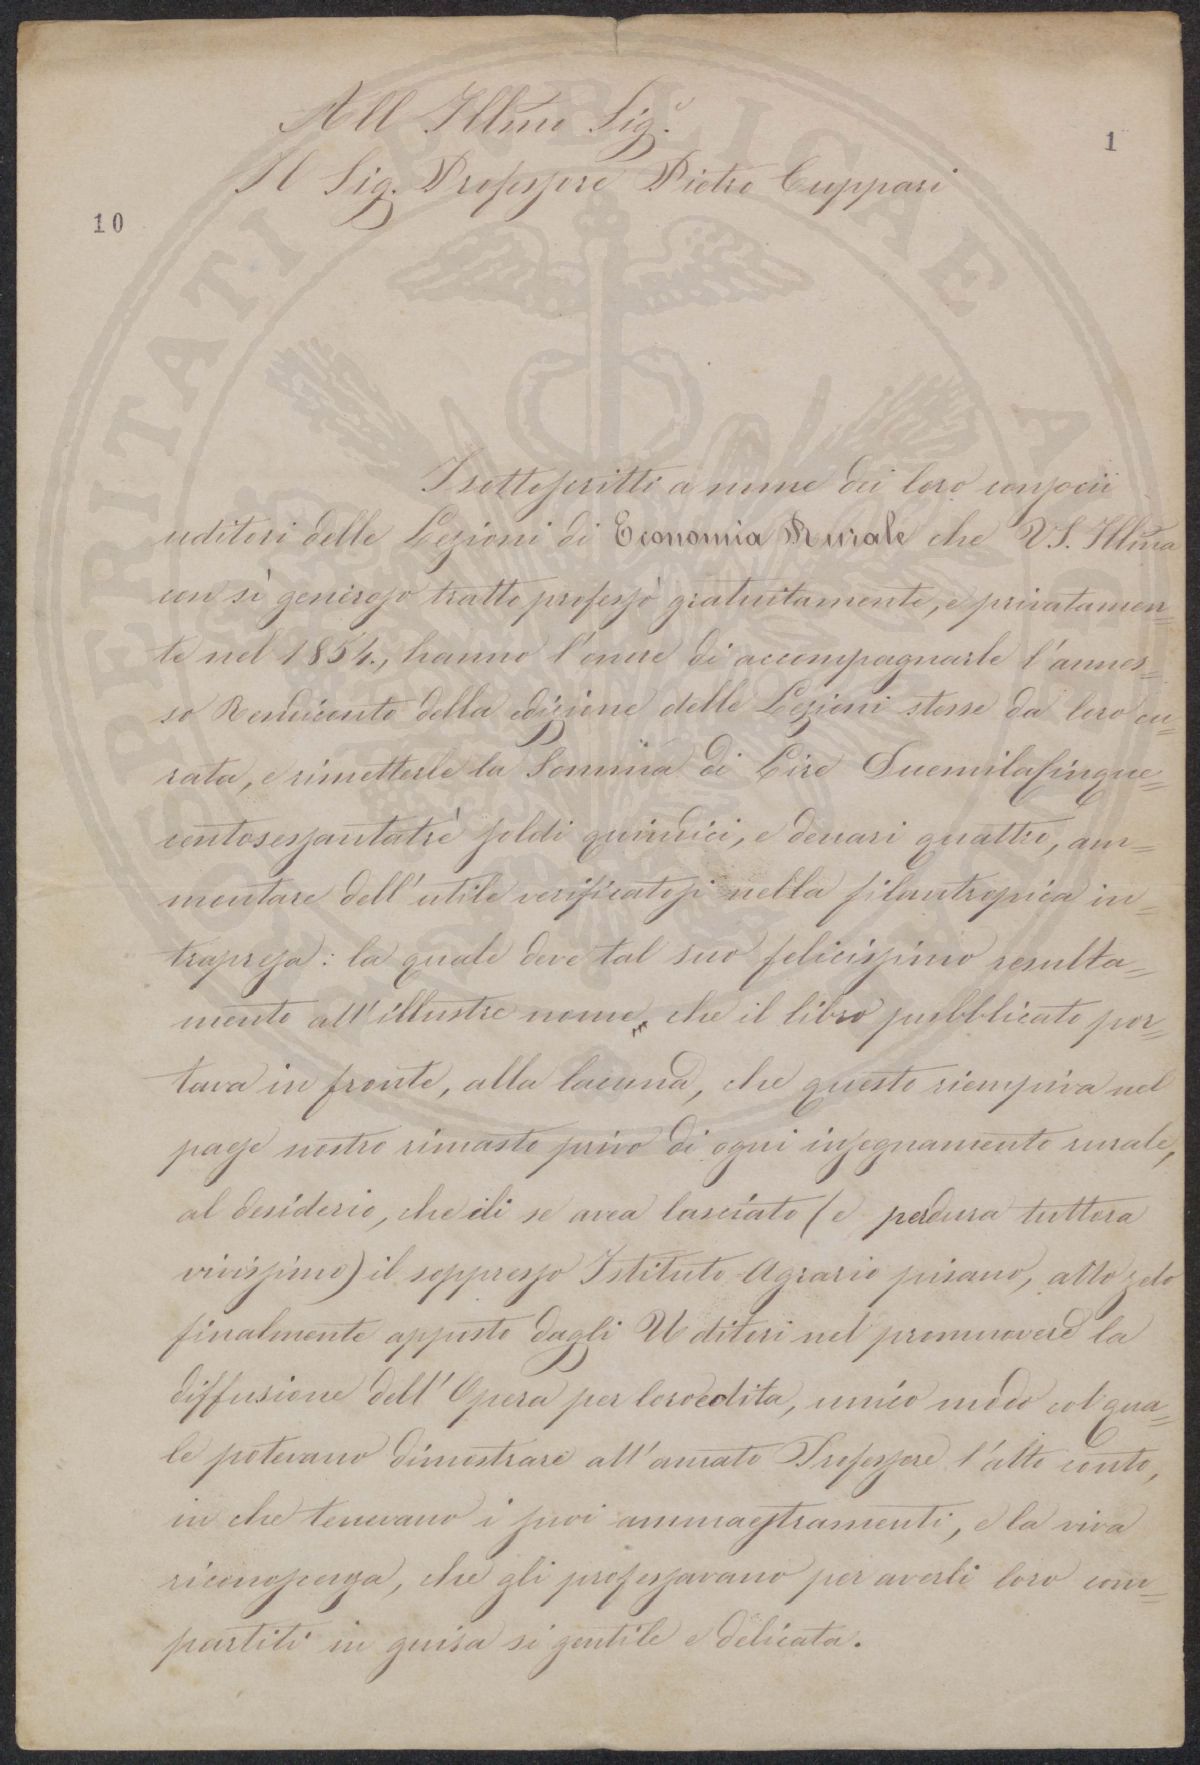 All Illmo Sig.r
1
Il Sig. Professore Pietro Cuppari
10
I sottoscritti a nome dei loro consocii
uditori delle Lezioni di Economia Rurale che V.S. Illma
con sì generoso tratto professò gratuitamente, e privatamen=
te nel 1854., hanno l'onore di accompagnarle l'annes=
so Rendiconto della edizione delle Lezioni stesse da loro cu=
rata, e rimetterle la Somma di Lire Duemilacinque=
centosessantatrè soldi quindici, e denari quattro, am=
montare dell'utile verificatosi nella filantropica in=
trapresa: la quale deve tal suo felicissimo resulta=
mento all'illustre nome, che il libro pubblicato por=
tava in fronte, alla lacuna, che questo riempiva nel
paese nostro rimasto privo di ogni insegnamento rurale,
al desiderio, che di se avea lasciato (e perdura tuttora
vivissimo) il soppresso Istituto Agrario pisano, allo zelo
finalmente apposto dagli Uditori nel promuovere la
diffusione dell'Opera per loro edita, unico modo col qua=
le potevano dimostrare all'amato Professore l'alto conto,
in che tenevano i suoi ammaestramenti, e la viva
riconoscenza, che gli professavano per averli loro com=
partiti in guisa si gentile e delicata.